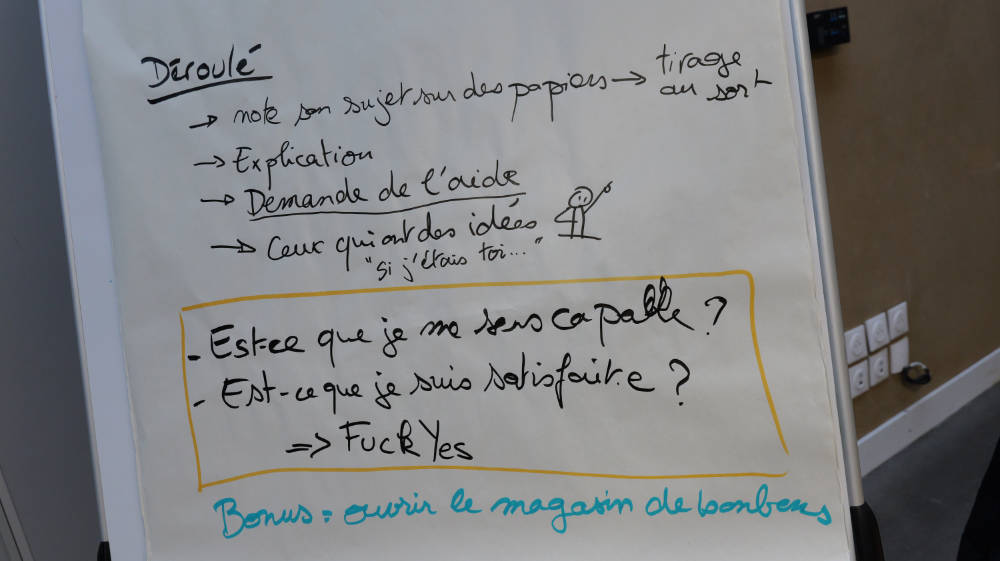 Déroulé
→ note son sujet sur des papiers → tirage au sort
→ Explication
→ Demande de l'aide
→ Ceux qui ont des idées
"si j'étais toi..."
- Est-ce que je me sens capable ?
- Est-ce que je suis satisfait.e ?
=> Fuck Yes
Bonus : ouvrir le magasin de bonbons